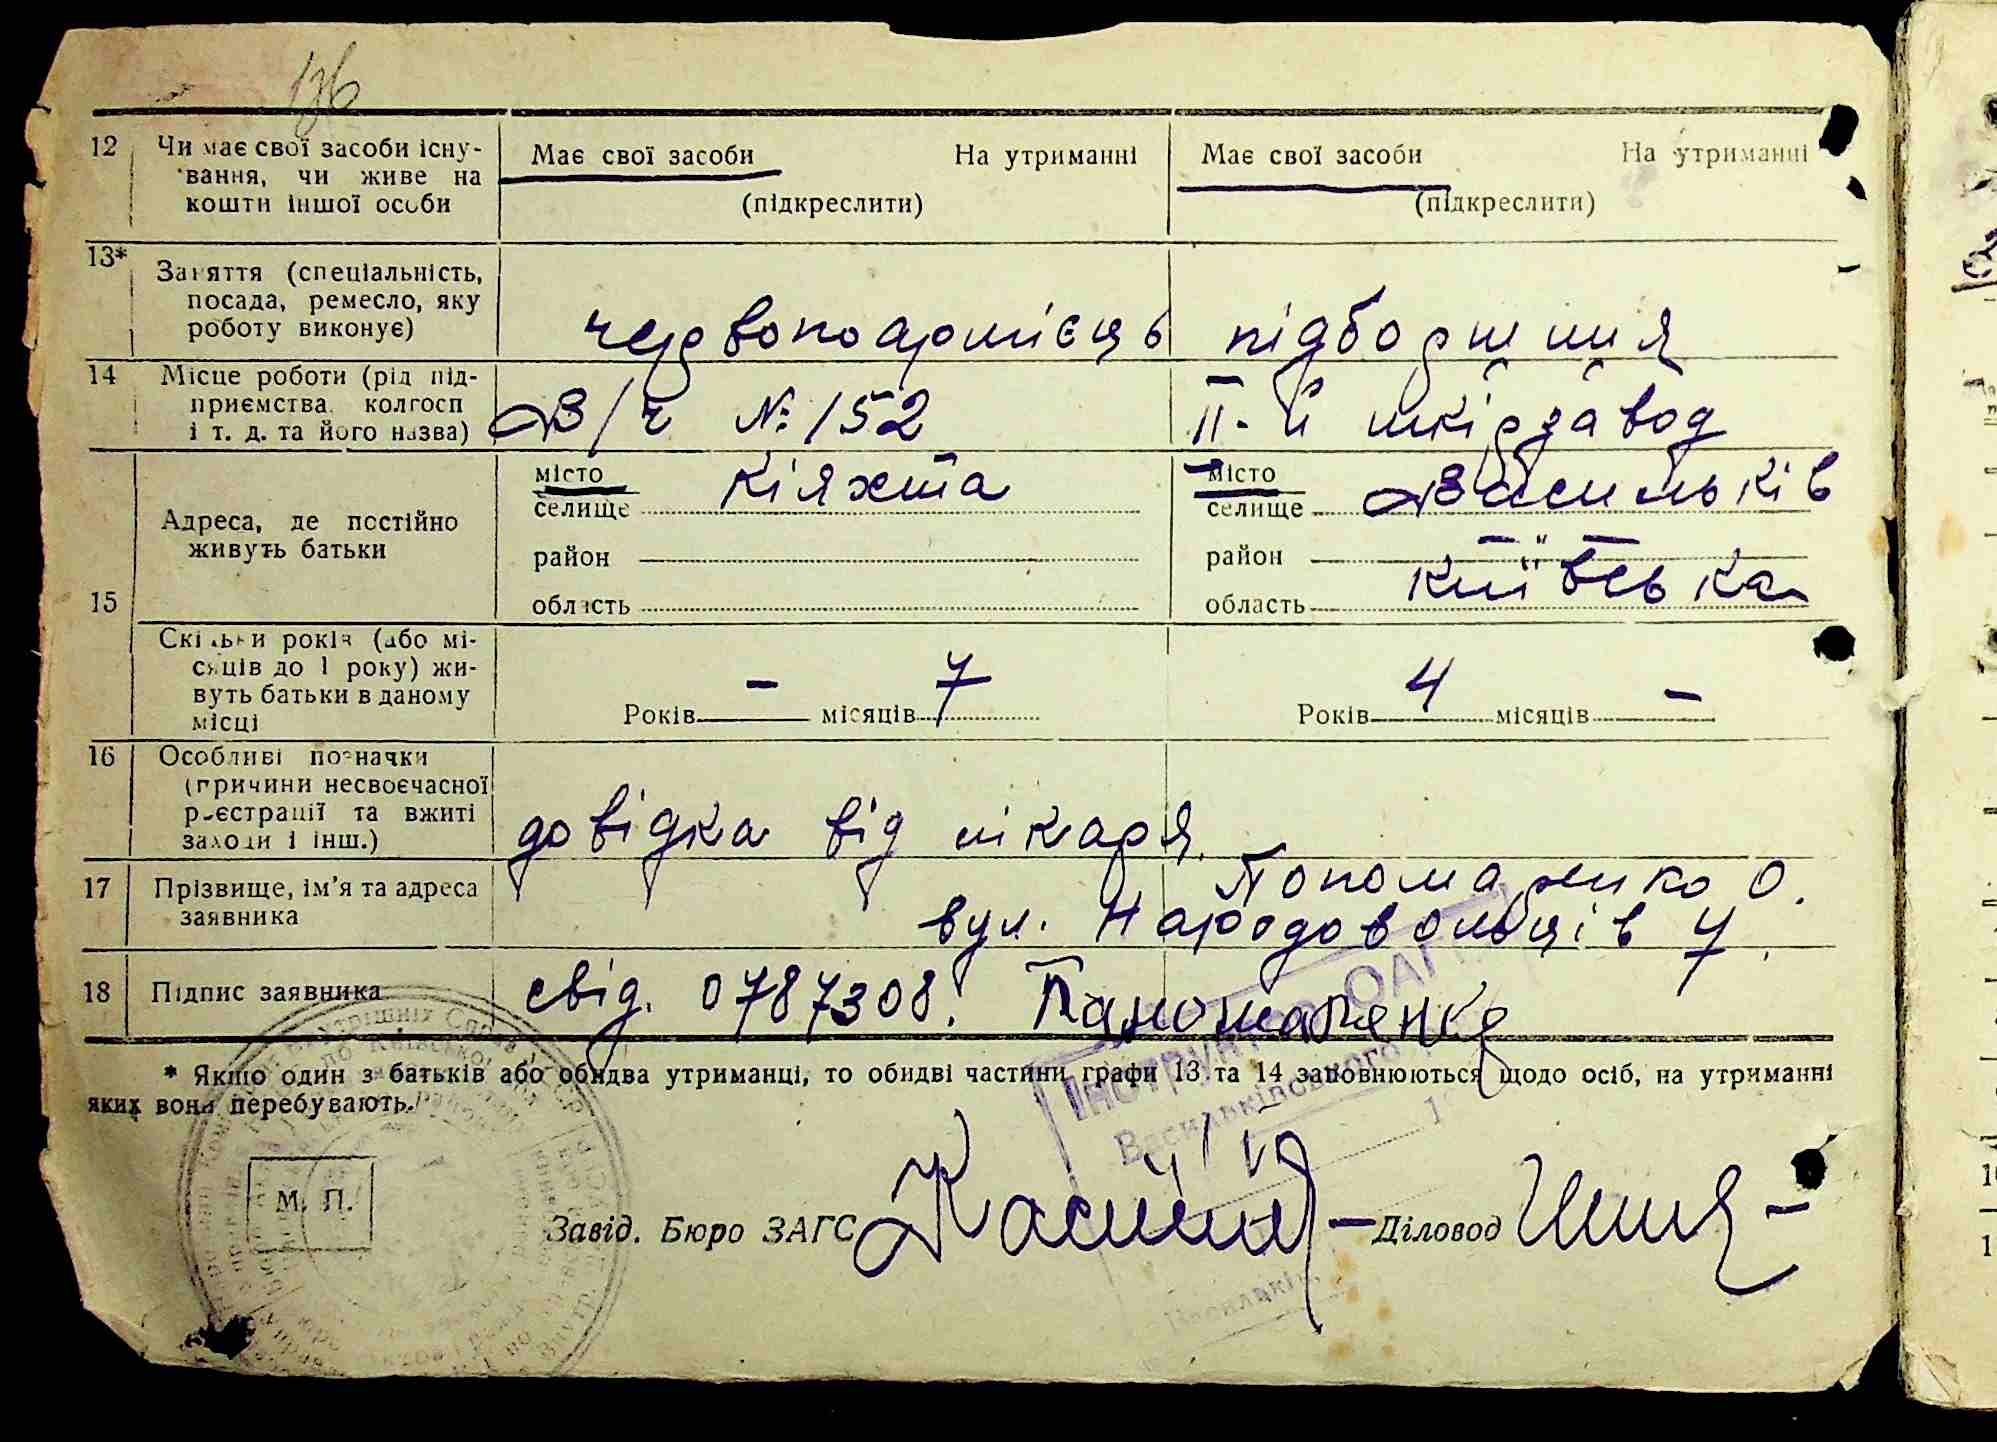 136
12 Чи має свої засоби існу-
вання, чи живе на
кошти іншої особи
Має свої засоби На утриманні
(підкреслити)
Має свої засоби На утриманні
(підкреслити)
13* Заняття (спеціальність,
посада, ремесло, яку
роботу виконує)
червоноармієць підборщиця
14 Місце роботи (рід під-
приємства, колгосп
і т. д. та його назва)
В/ч № 152
II-й шкірзавод
15 Адреса, де постійно
живуть батьки
місто Кіяхта
селище
район
область
місто Васильків
селище
район
область Київська
Скільки років (або мі-
сяців до 1 року) жи-
вуть батьки в даному
місці
Років – місяців 7
Років 4 місяців –
16 Особливі позначки
(причини несвоєчасної
реєстрації та вжиті
заходи і інш.)
довідка від лікаря.
17 Прізвище, ім’я та адреса
заявника
Пономаренко О.
вул. Народовольців 7.
18 Підпис заявника
свід. 0787308.
* Якщо один з батьків або обидва утриманці, то обидві частини графи 13 та 14 заповнюються щодо осіб, на утриманні
яких вони перебувають.
Васильківського
М. П.
Завід. Бюро ЗАГС
Діловод